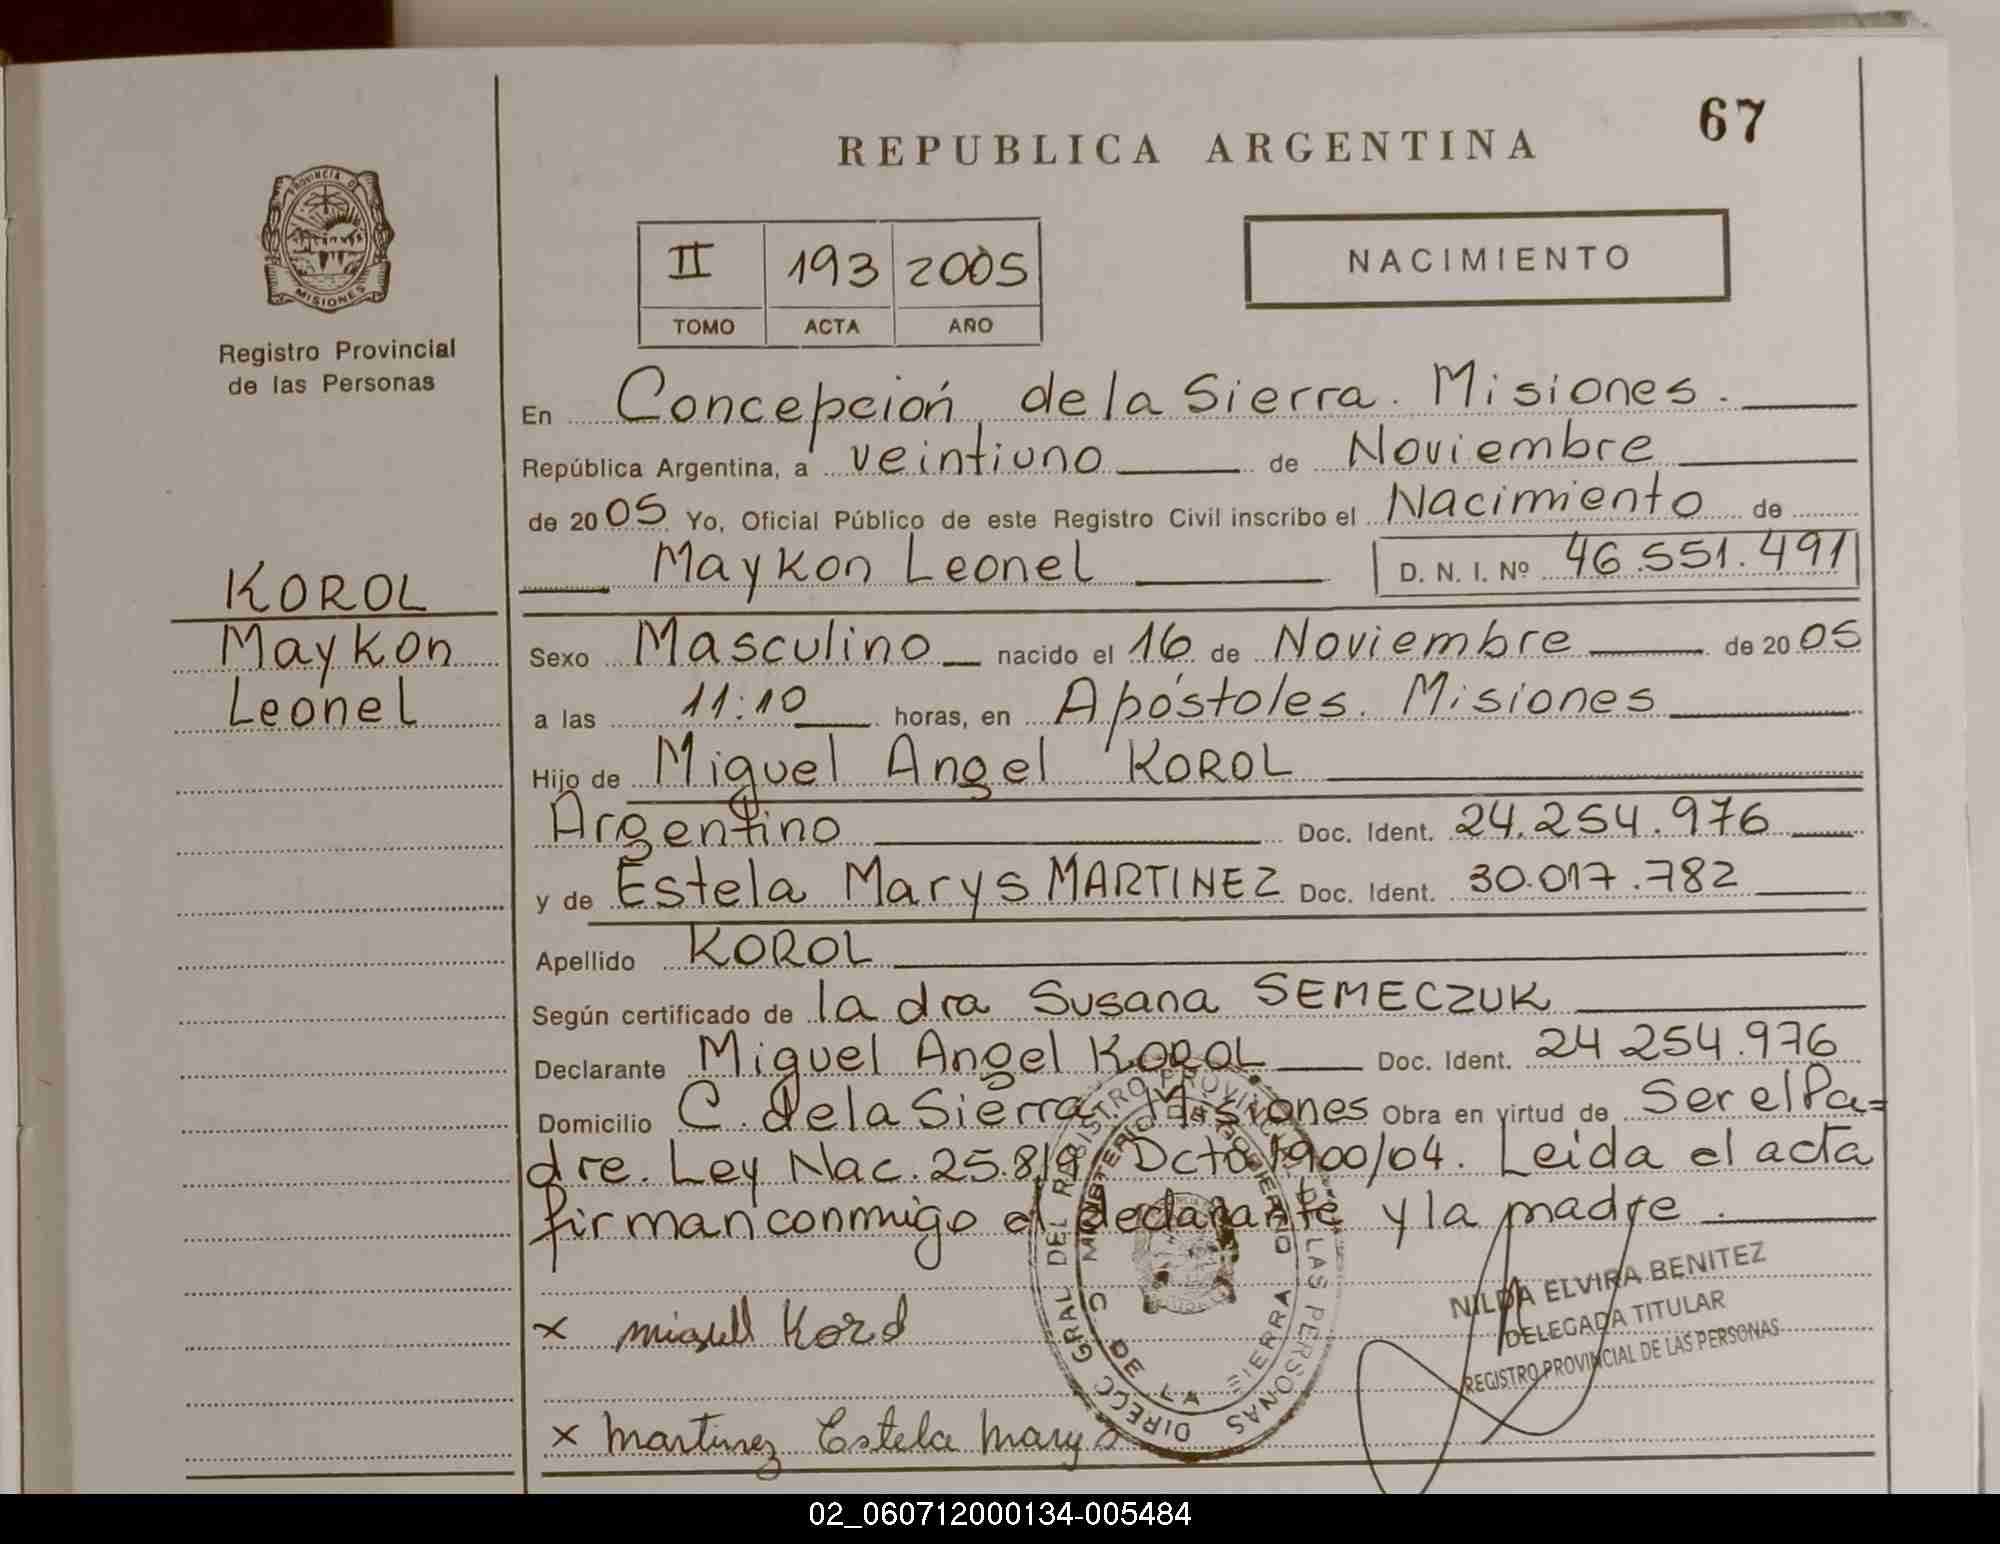 67
REPUBLICA ARGENTINA
PROVINCIA DE
MISIONES
Registro Provincial
de las Personas
II 193 2005
TOMO ACTA AÑO
NACIMIENTO
En Concepción de la Sierra. Misiones.
República Argentina, a veintiuno de Noviembre
de 2005 Yo, Oficial Público de este Registro Civil inscribo el Nacimiento de
Maykon Leonel D. N. I. Nº 46.551.491
KOROL
Maykon
Leonel
Sexo Masculino nacido el 16 de Noviembre de 2005
a las 11:10 horas, en Apóstoles. Misiones
Hijo de Miguel Angel KOROL
Argentino Doc. Ident. 24.254.976
y de Estela Marys MARTINEZ Doc. Ident. 30.017.782
Apellido KOROL
Según certificado de la dra Susana SEMECZUK
Declarante Miguel Angel KOROL Doc. Ident. 24 254.976
Domicilio C. de la Sierra. Misiones Obra en virtud de Ser el Pa=
dre. Ley Nac. 25.819 Dcto 1900/04. Leida el acta
firman conmigo el declarante y la madre.
x miguel Korol
x Martinez Estela Marys
DIRECC GRAL DEL REGISTRO PROVINCIAL DE LAS PERSONAS
MINISTERIO DE GOBIERNO
C DE LA SIERRA
NILDA ELVIRA BENITEZ
DELEGADA TITULAR
REGISTRO PROVINCIAL DE LAS PERSONAS
02_060712000134-005484